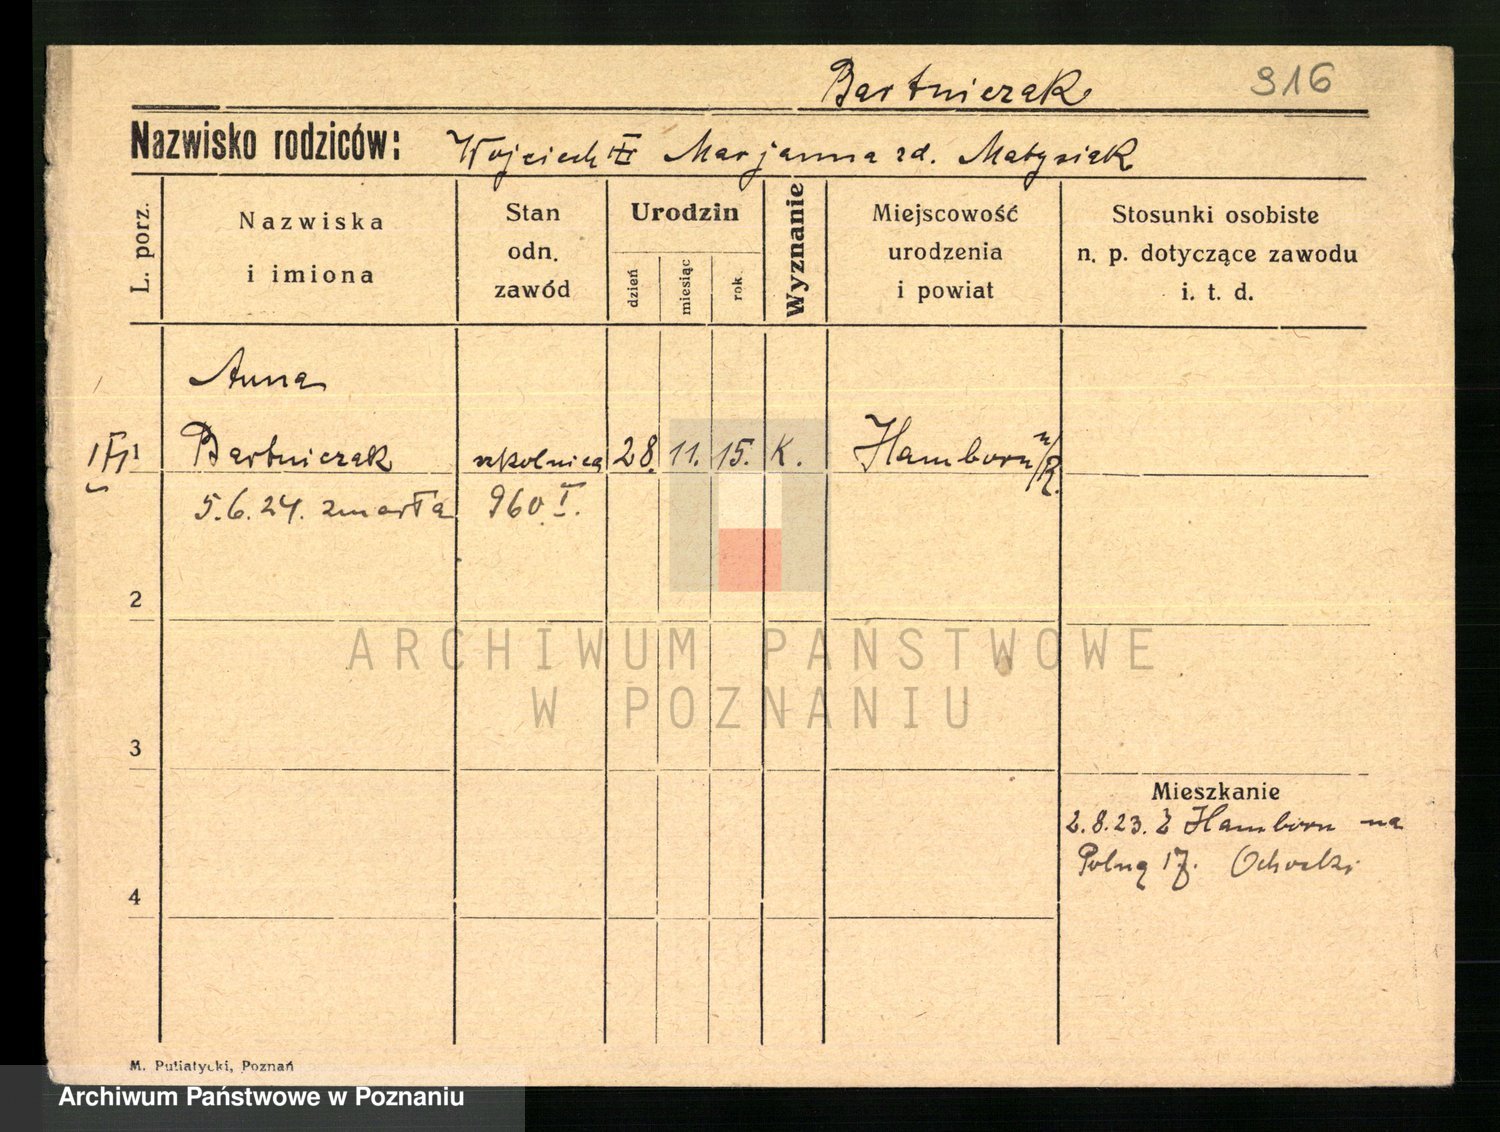 Bartniczak 916
Nazwisko rodziców: Wojciech Marjanna zd. Matysiak
L. porz.
Nazwiska
i imiona
Stan
odn.
zawód
Urodzin
dzień
miesiąc
rok
Wyznanie
Miejscowość
urodzenia
i powiat
Stosunki osobiste
n. p. dotyczące zawodu
i. t. d.
Anna
1 Bartniczak szkolnica 28. 11. 15. K. Hamborn n/R.
5.6.24. zmarła 960 I.
2
3
Mieszkanie
2.8.23. Z Hamborn na
Polną 17. Ochocki
4
M. Putiatycki, Poznań
ARCHIWUM PAŃSTWOWE
W POZNANIU
Archiwum Państwowe w Poznaniu